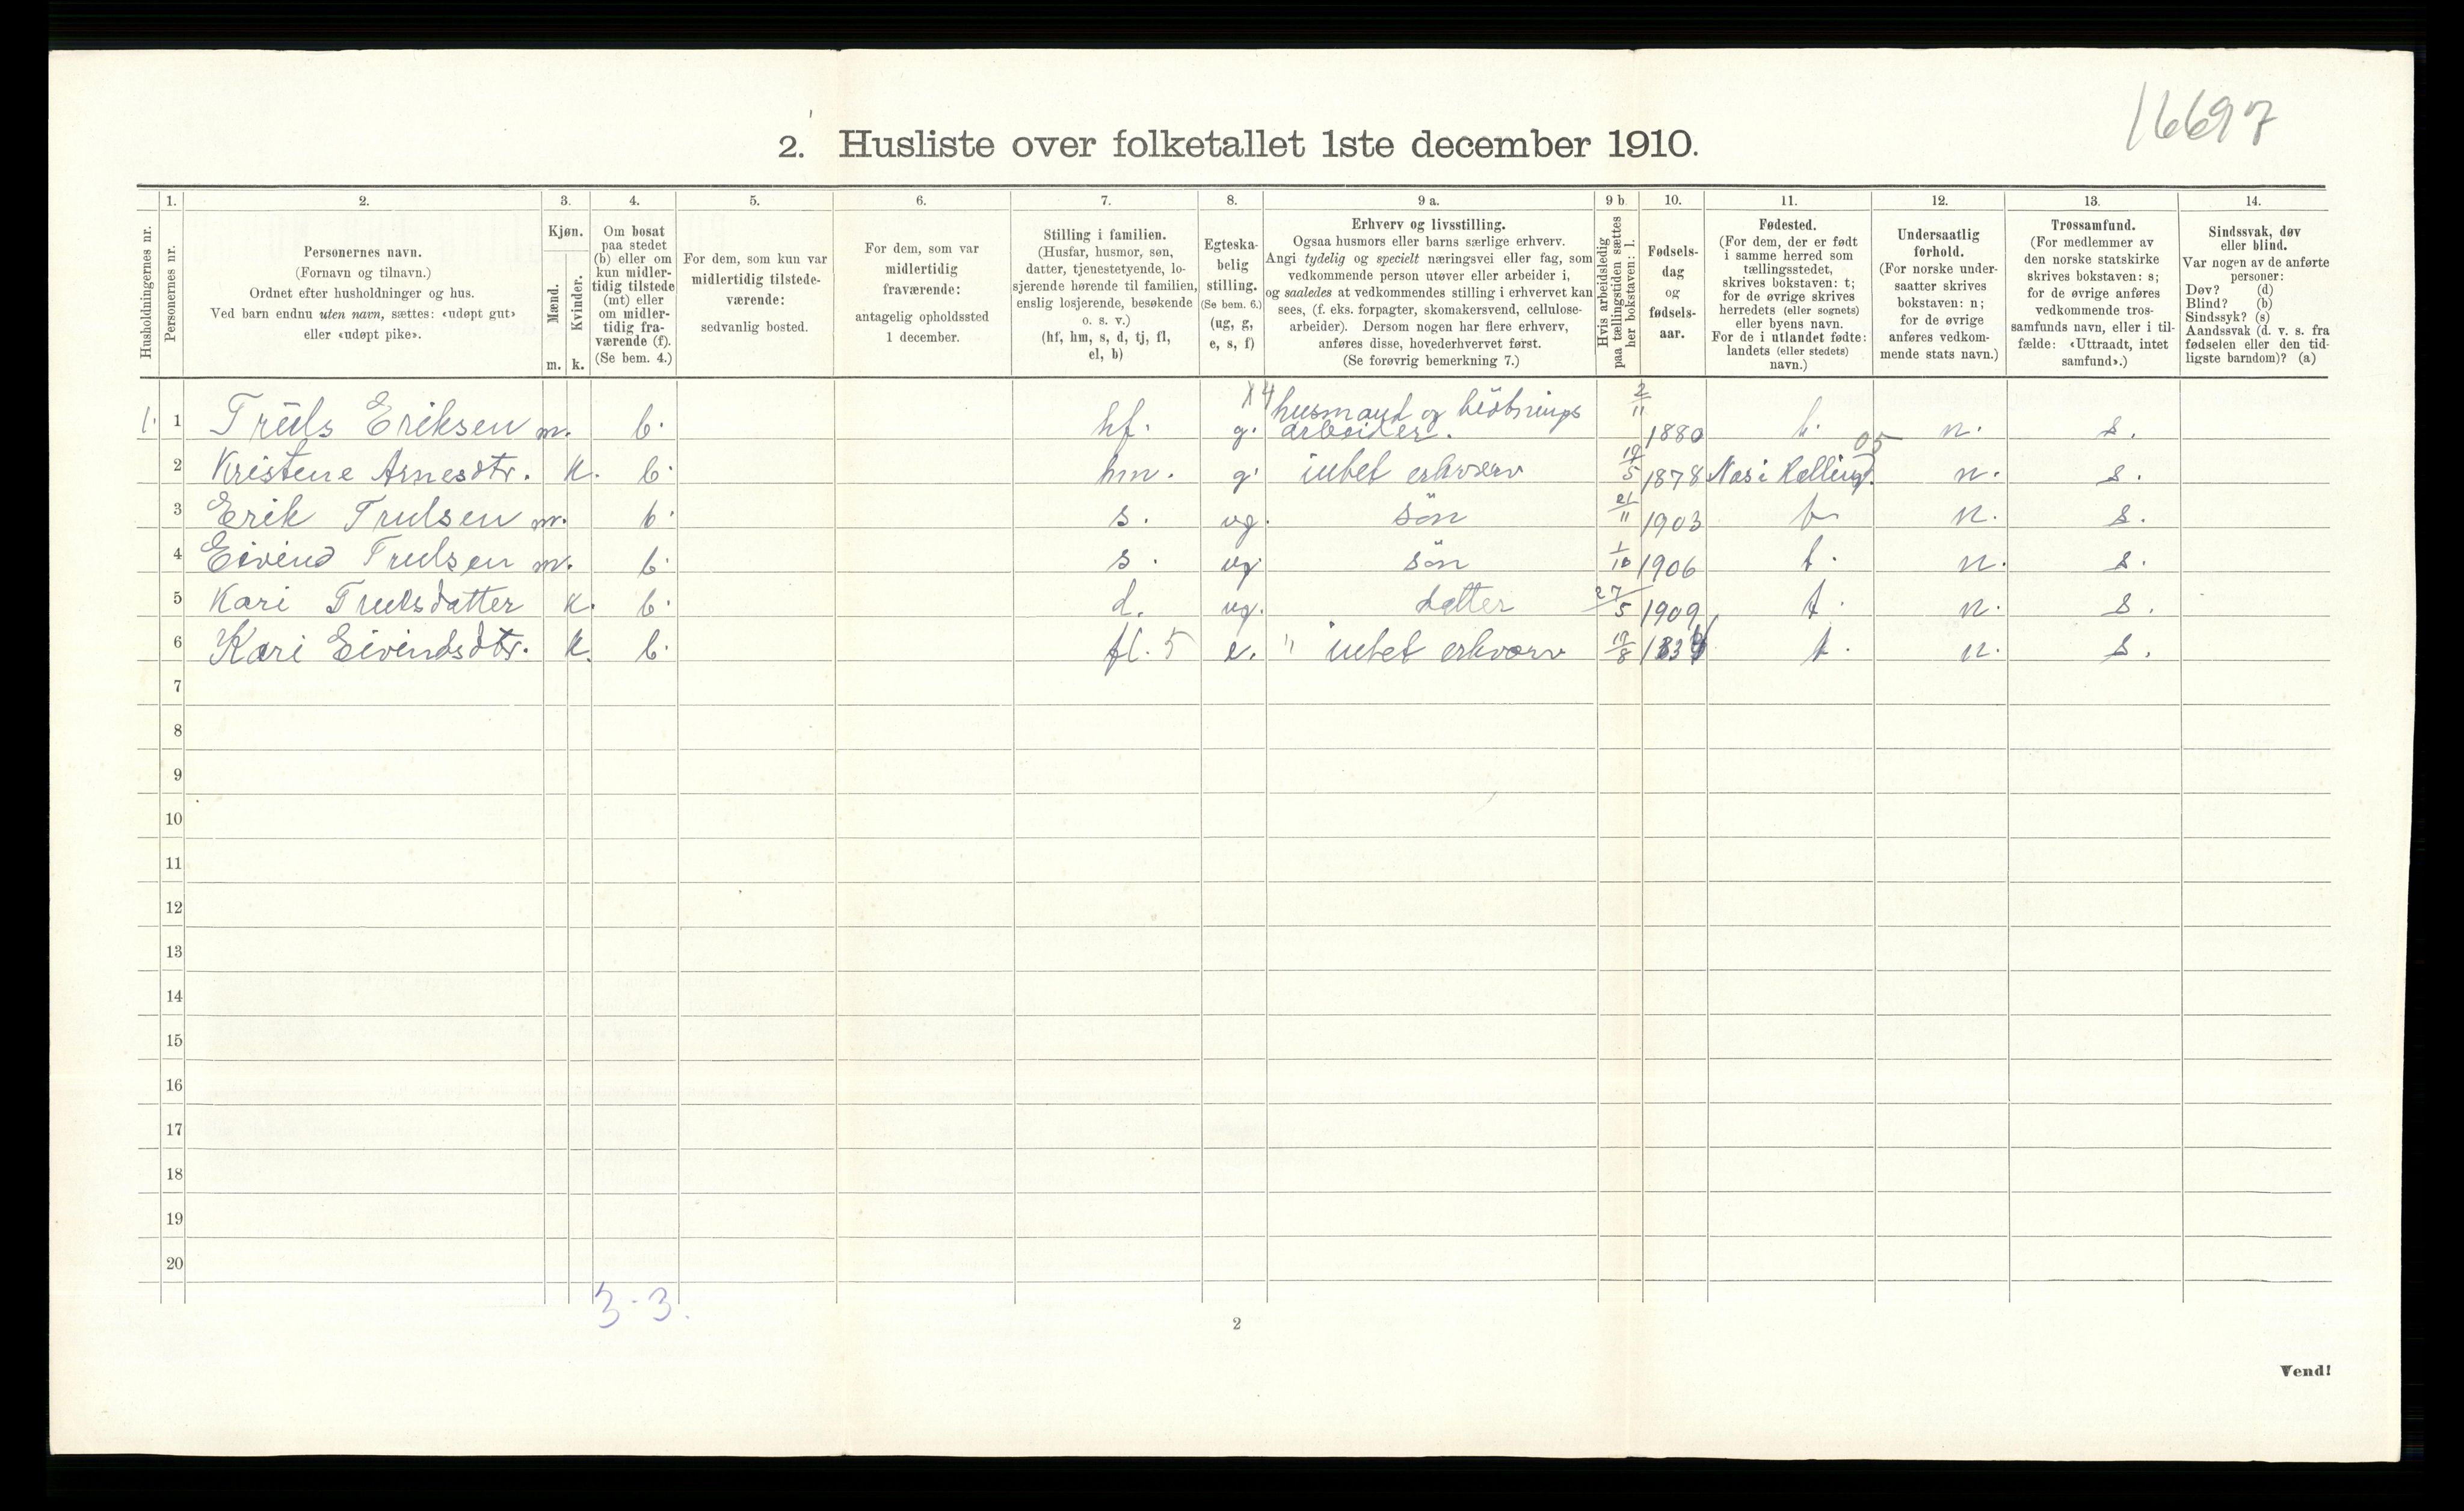 16697
2. Husliste over folketallet 1ste december 1910.
Husholdningernes nr.
1. Personernes nr.
2. Personernes navn.
(Fornavn og tilnavn.)
Ordnet efter husholdninger og hus.
Ved barn endnu uten navn, sættes: «udøpt gut»
eller «udøpt pike».
3. Kjøn.
Mænd. Kvinder.
m. k.
4. Om bosat
paa stedet
(b) eller om
kun midler-
tidig tilstede
(mt) eller
om midler-
tidig fra-
værende (f).
(Se bem. 4.)
5. For dem, som kun var
midlertidig tilstede-
værende:
sedvanlig bosted.
6. For dem, som var
midlertidig
fraværende:
antagelig opholdssted
1 december.
7. Stilling i familien.
(Husfar, husmor, søn,
datter, tjenestetyende, lo-
sjerende hørende til familien,
enslig losjerende, besøkende
o. s. v.)
(hf, hm, s, d, tj, fl,
el, b)
8. Egteska-
belig
stilling.
(Se bem. 6.)
(ug, g,
e, s, f)
9 a. Erhverv og livsstilling.
Ogsaa husmors eller barns særlige erhverv.
Angi tydelig og specielt næringsvei eller fag, som
vedkommende person utøver eller arbeider i,
og saaledes at vedkommendes stilling i erhvervet kan
sees, (f. eks. forpagter, skomakersvend, cellulose-
arbeider). Dersom nogen har flere erhverv,
anføres disse, hovederhvervet først.
(Se forøvrig bemerkning 7.)
9 b. Hvis arbeidsledig
paa tællingstiden sættes
her bokstaven: l.
10. Fødsels-
dag
og
fødsels-
aar.
11. Fødested.
(For dem, der er født
i samme herred som
tællingsstedet,
skrives bokstaven: t;
for de øvrige skrives
herredets (eller sognets)
eller byens navn.
For de i utlandet fødte:
landets (eller stedets)
navn.)
12. Undersaatlig
forhold.
(For norske under-
saatter skrives
bokstaven: n;
for de øvrige
anføres vedkom-
mende stats navn.)
13. Trossamfund.
(For medlemmer av
den norske statskirke
skrives bokstaven: s;
for de øvrige anføres
vedkommende tros-
samfunds navn, eller i til-
fælde: «Uttraadt, intet
samfund».)
14. Sindssvak, døv
eller blind.
Var nogen av de anførte
personer:
Døv? (d)
Blind? (b)
Sindssyk? (s)
Aandssvak (d. v. s. fra
fødselen eller den tid-
ligste barndom)? (a)
1. 1 Truls Eriksen m. b. hf. g. X4 husmand og arbeider. 2/11 1880 t. n. s.
2 Kristene Arnesdtr. k. b. hm. g. intet erhverv 19/5 1878 Nes i Halling. 05 n. s.
3 Erik Trulsen m. b. s. ug. sön 21/11 1903 t n. s.
4 Eivind Trulsen m. b. s. ug. sön 1/10 1906 t. n. s.
5 Kari Trulsdatter k. b. d. ug. datter 27/5 1909 t. n. s.
6 Kari Eivindsdtr. k. b. fl. 5 e. " intet erhverv 19/8 t. n. s.
7
8
9
10
11
12
13
14
15
16
17
18
19
20
3 - 3.
2
Vend!